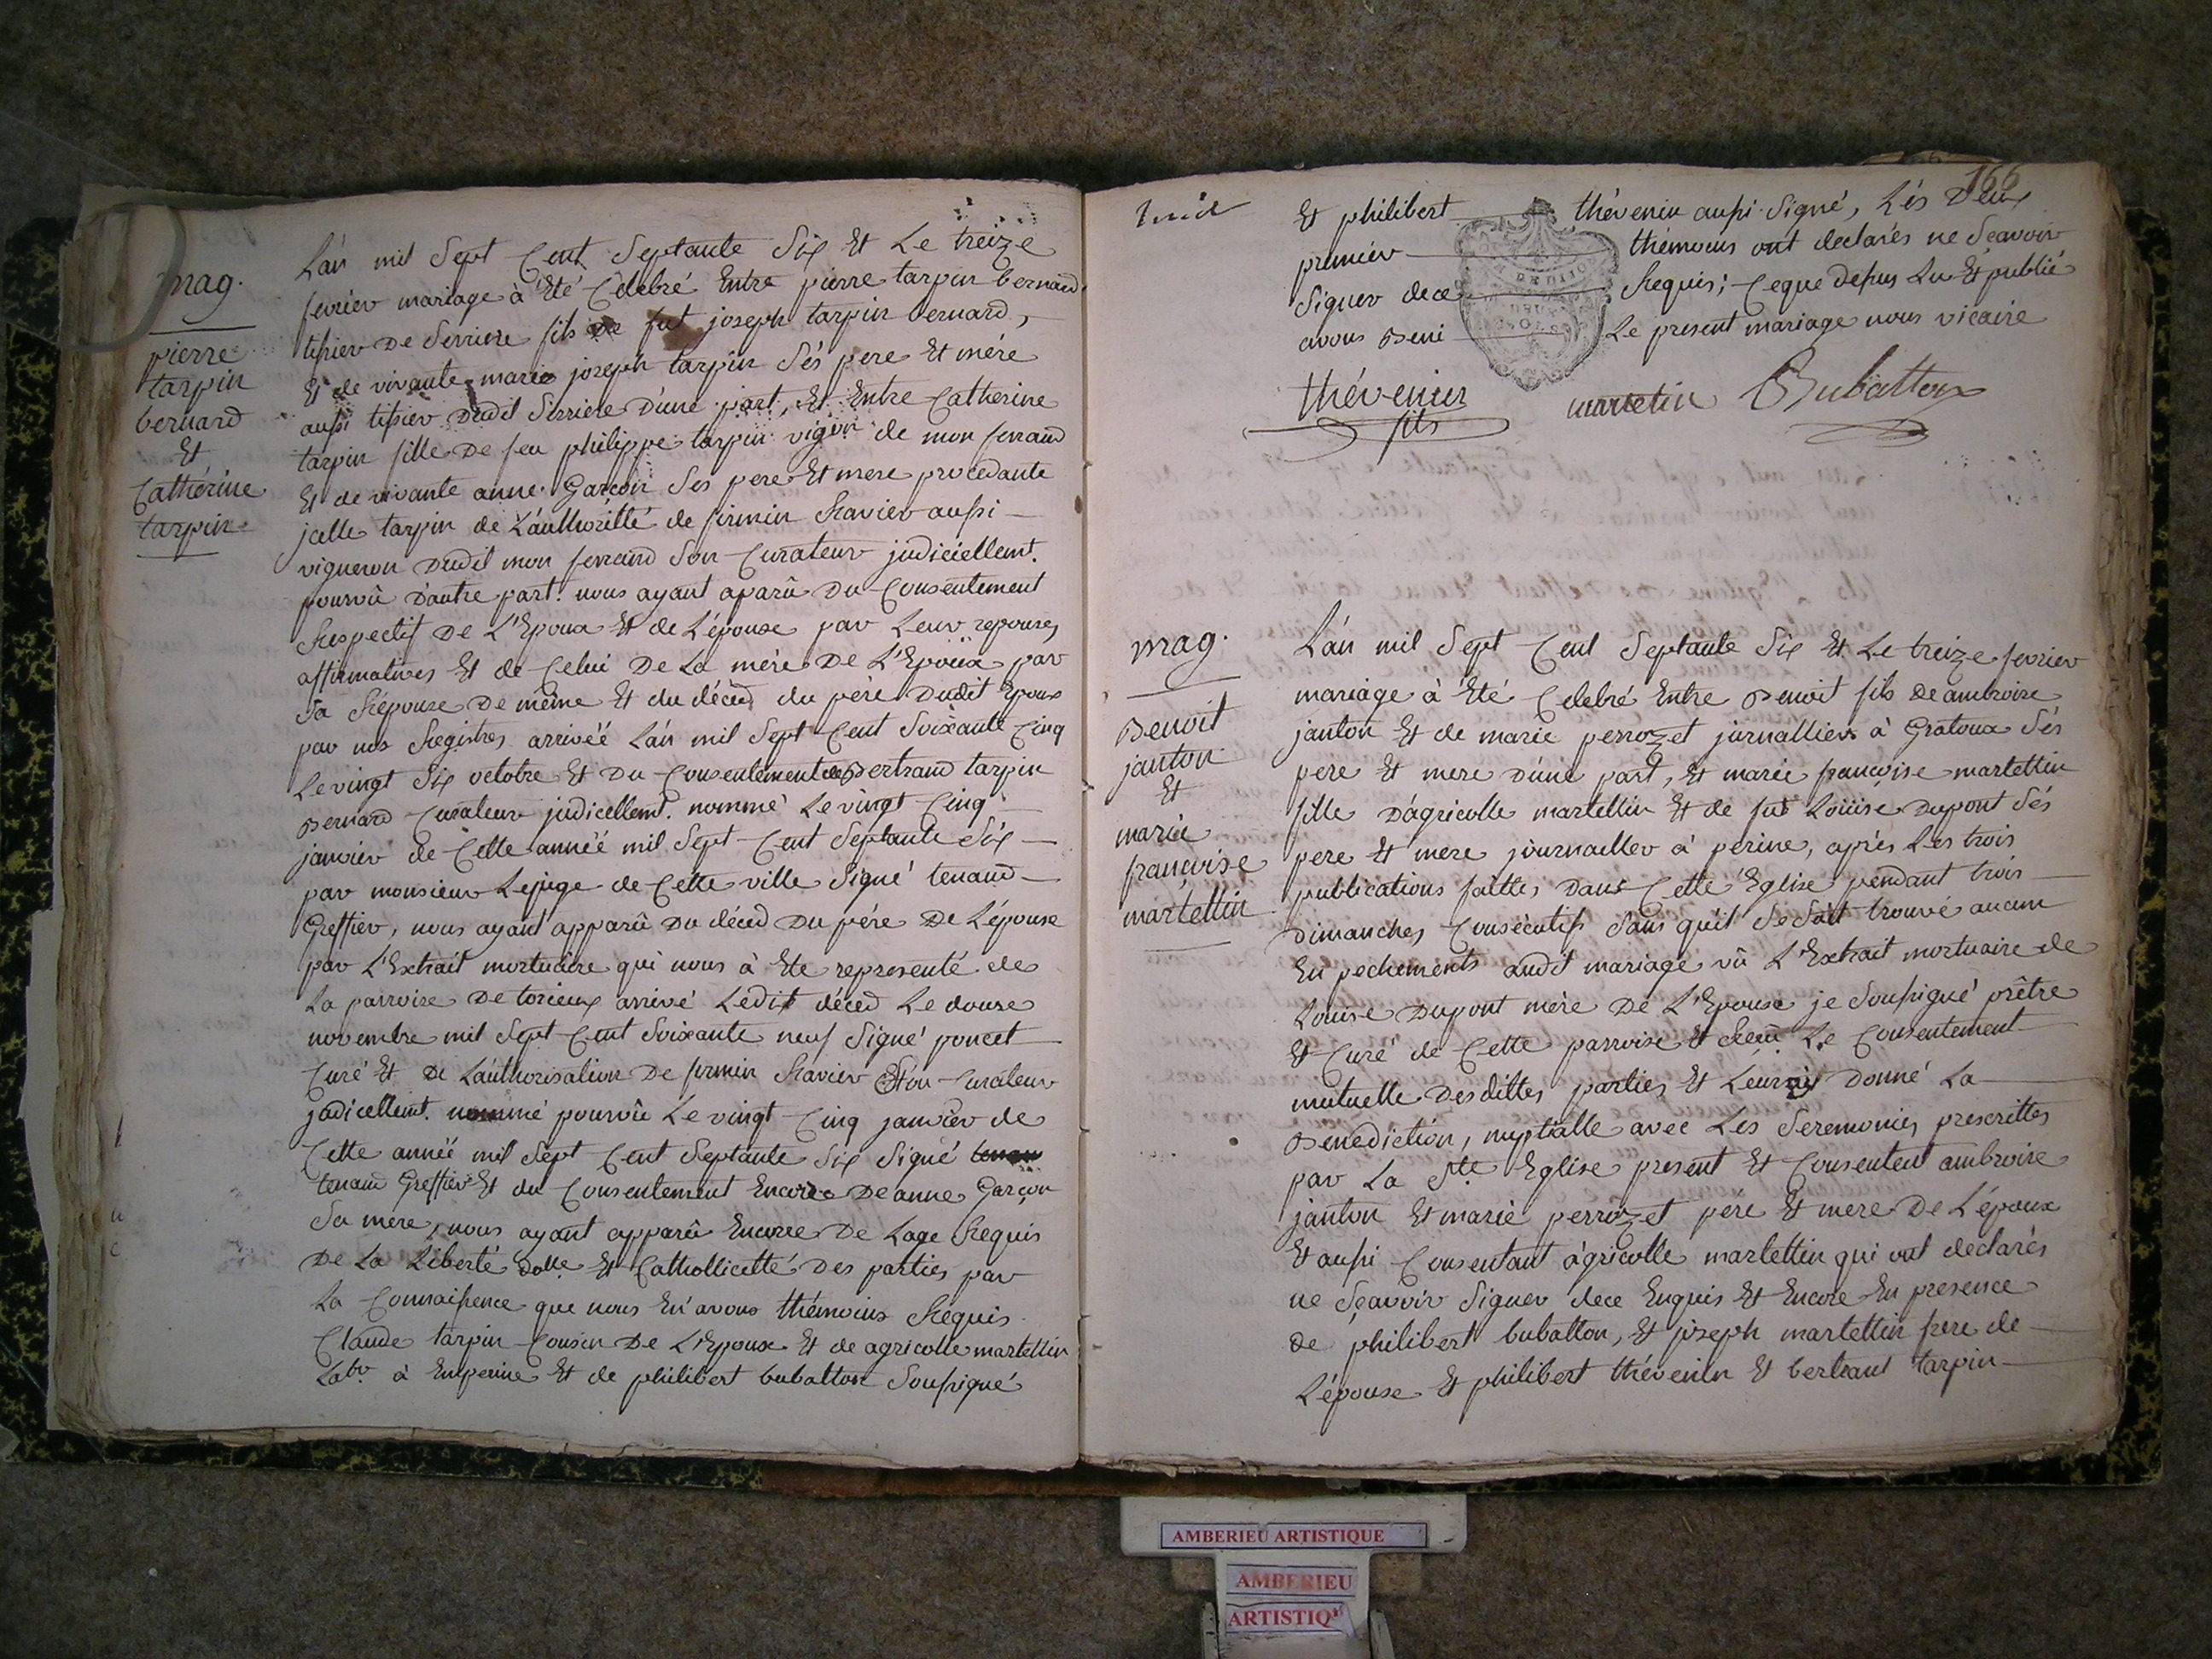 mag.
pierre
tarpin
bernard
Et
Catherine
tarpin
L'an mil Sept Cent Septante Six Et Le treize
fevrier mariage à Eté Celebré Entre pierre tarpin bernard
tissier De Serriere fils de fut joseph tarpin bernard,
Et de vivante marie joseph tarpin Sés pere Et mére
aussi tissier Dudit Serriere D'une part, Et Entre Catherine
tarpin fille De feu philippe tarpin vigon de mon ferrand
Et de vivante anne Garçon Ses pere Et mere procedante
jcelle tarpin de L'authoritté de firmin Ravier aussi
vigneron Dudit mon ferrand Son Curateur judiciellemt.
pourvû D'autre part. nous ayant aparû Du Consentement
Respectif De L'Epoux Et de L'épouse par Leur reponses
affirmatives Et de Celui De La mére De L'Epoux par
Sa Réponse De même Et du décéd du pére Dudit Epoux
par nos Registres arrivéé L'an mil Sept Cent Soixante Cinq
Le vingt Six octobre Et Du Consentement de Bertrand tarpin
Bernard Curateur judicellemt. nommé Le vingt Cinq
janvier de Cette annéé mil Sept Cent Septante Six
par monsieur Le juge de Cette ville Signé tenand
Greffier, nous ayant apparû Du décéd Du pére De L'épouse
par L'Extrait mortuaire qui nous à Ete representé de
La parroise De torieux arrivé Ledit décéd Le douse
novembre mil Sept Cent Soixante neuf Signé poncet
Curé Et De L'authorisation De firmin Ravier Son Curateur
judicellemt. nommé pourvû Le vingt Cinq janvier de
Cette annéé mil Sept Cent Septante Six Signé
tenand Greffier Et du Consentement Encore De anne Garçon
Sa mere, nous ayant apparû Encore De L'age Requis
De La Liberté Et Cathollicitté Des parties par
La Connaissence que nous En avons thémoins Réquis
Claude tarpin Cousin De L'Epoux Et de agricolle martellin
Labr. à Enperine Et de philibert bubatton Soussigné
166
Et philibert thévenin aussi Signé, Lés Deux
premier thémoins ont declarés ne Sçavoir
Signer dece Requis; Ceque Dessus Lu Et publié
avons Beni Le present mariage nous vicaire
thévenin
fils
martelin Bubatton
mag.
Benoit
janton
Et
marie
françoise
martellin
L'an mil Sept Cent Septante Six Et Le treize fevrier
mariage à Eté Celebré Entre Benoit fils de ambroise
janton Et de marie perrozet jurnalliers à Gratoux Sés
pere Et mere D'une part, Et marie françoise martettin
fille D'agricolle martellin Et de fut Louise Dupont Sés
pere Et mere journallier à perine, aprés Les trois
publications faittes Dans Cette Eglise pendant trois
Dimanches Consécutifs Sans qu'il Se Soit trouvé aucun
Enpechements audit mariage vû L'Extrait mortuaire de
Louise Dupont mère De L'Epouse je Soussigné prêtre
Et Curé de Cette parroise Et Le Consentement
mutuelle Desdittes parties Et Leur ay Donné La
Benediction, nuptialle avec Les Seremonies prescrittes
par La Ste. Eglise present Et Consentent ambroise
janton Et marie perrozet pére Et mere De L'époux
Et aussi Consentant agricolle martettin qui ont declarés
ne Sçavoir Signer dece Enquis Et Encore En presence
de philibert bubatton, Et joseph martettin frere de
L'épouse Et philibert thévenin Et bertrant tarpin
AMBERIEU ARTISTIQUE
AMBERIEU
ARTISTIQ